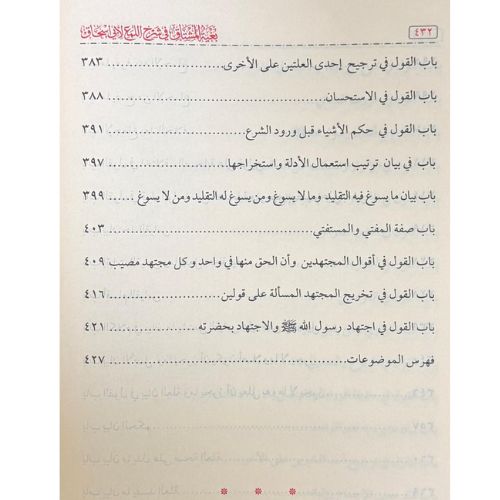 ٤٣٢ بغية المشتاق في شرح اللمع لأبي إسحاق
باب القول في ترجيح إحدى العلتين على الأخرى ٣٨٣
باب القول في الاستحسان ٣٨٨
باب القول في حكم الأشياء قبل ورود الشرع ٣٩١
باب في بيان ترتيب استعمال الأدلة واستخراجها ٣٩٧
باب بيان ما يسوغ فيه التقليد وما لا يسوغ ومن يسوغ له التقليد ومن لا يسوغ ٣٩٩
باب صفة المفتي والمستفتي ٤٠٣
باب القول في أقوال المجتهدين وأن الحق منها في واحد و كل مجتهد مصيب ٤٠٩
باب القول في تخريج المجتهد المسألة على قولين ٤١٦
باب القول في اجتهاد رسول الله ﷺ والاجتهاد بحضرته ٤٢١
فهرس الموضوعات ٤٢٧